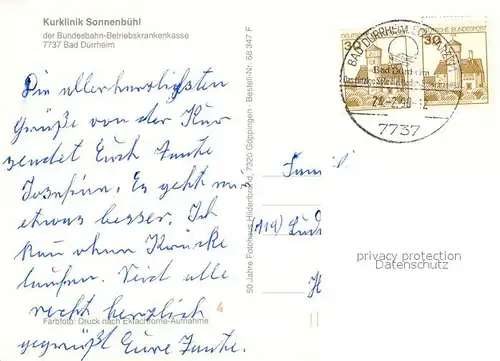 Kurklinik Sonnenbühl
der Bundesbahn-Betriebskrankenkasse
7737 Bad Dürrheim
Die allerherzlichsten
Grüße von der Kur
sendet Euch Tante
Josefine. Es geht mir
etwas besser. Ich
kan ohne Krücke
laufen. Seid alle
recht herzlich
gegrüßt Eure Tante.
Farbfoto: Druck nach Ektachrome-Aufnahme
50 Jahre Fotohaus Hildenbrand, 7320 Göppingen · Bestell-Nr. 68 347 F
BAD DÜRRHEIM
Bad Dürrheim
7737
30
30
DEUTSCHE BUNDESPOST
Fami
H
privacy protection
Datenschutz